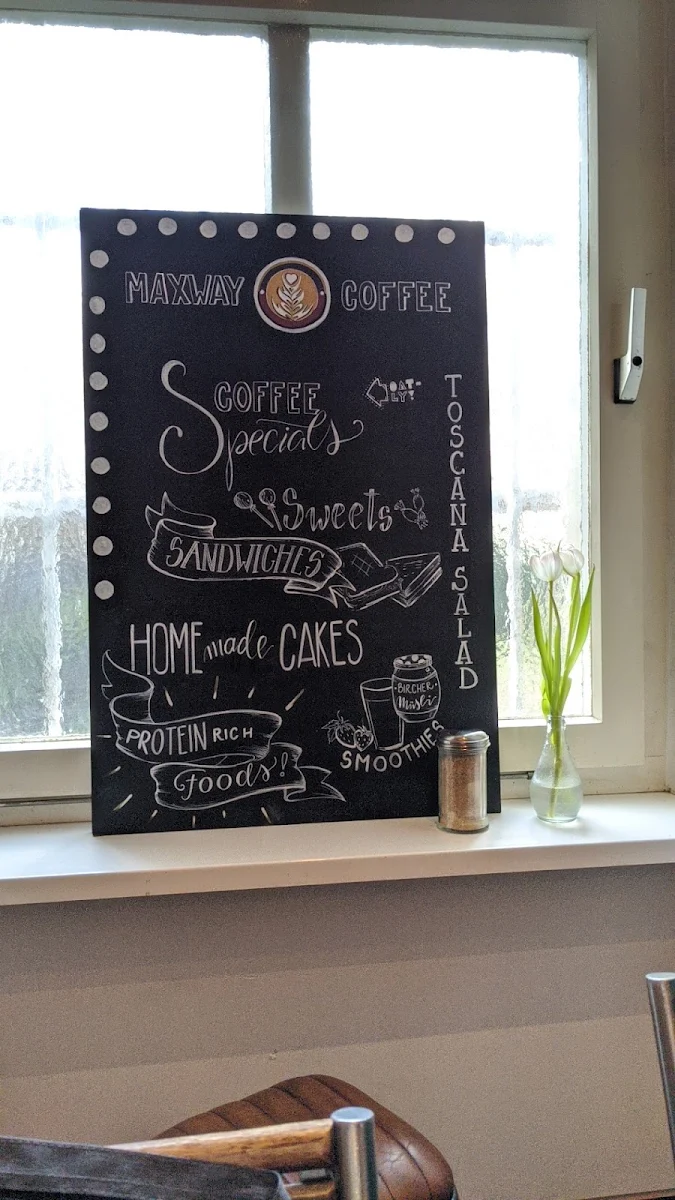 MAXWAY COFFEE
COFFEE
Specials
OAT-
LY!
TOSCANA SALAD
Sweets
SANDWICHES
HOMEmade CAKES
BIRCHER
Müsli
PROTEIN RICH
foods!
SMOOTHIES